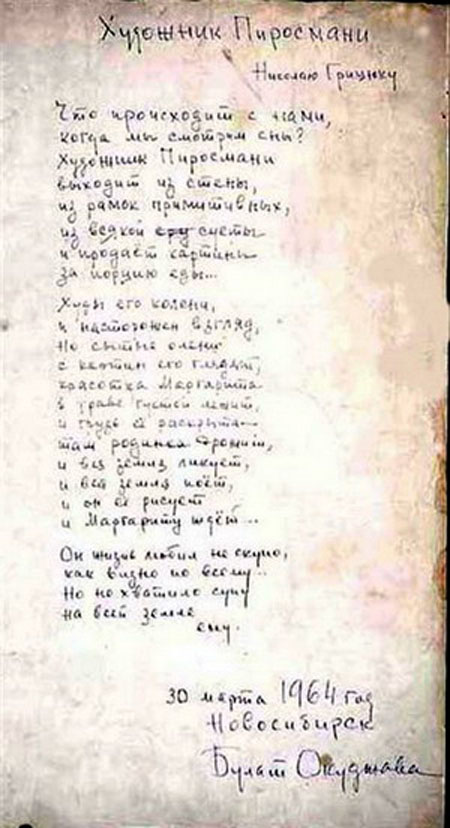 Художник Пиросмани
Николаю Грицюку
Что происходит с нами,
когда мы смотрим сны?
Художник Пиросмани
выходит из стены,
из рамок примитивных,
из всякой суеты
и продаёт картины
за порцию еды...
Худы его колени,
и насторожен взгляд,
Но сытые олени
с картин его глядят,
красотка Маргарита
в траве густой лежит,
и грудь её раскрыта
там родинка дрожит,
и вся земля ликует,
и вся земля поёт,
и он её рисует
и Маргариту ждёт...
Он жизнь любил не скупо,
как видно по всему..
Но не хватило супу
на всей земле
ему.
30 марта 1964 год
Новосибирск
Булат Окуджава